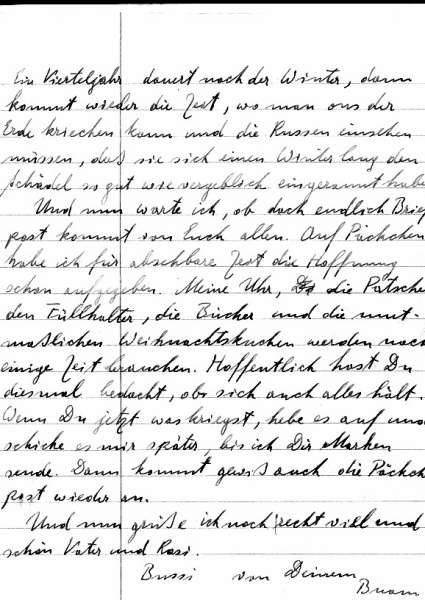 Ein Vierteljahr dauert noch der Winter, dann
kommt wieder die Zeit, wo man aus der
Erde kriechen kann und die Russen einsehen
müssen, daß sie sich einen Winter lang den
Schädel so gut wie vergeblich eingerannt habe
Und nun warte ich, ob doch endlich Brief
post kommt von Euch allen. Auf Päckchen
habe ich für absehbare Zeit die Hoffnung
schon aufgegeben. Meine Uhr, die Patsche
den Füllhalter, die Bücher und die mut-
maßlichen Weihnachtskuchen werden noch
einige Zeit brauchen. Hoffentlich hast Du
diesmal bedacht, ob sich auch alles hält.
Wenn Du jetzt was kriegst, hebe es auf und
schicke es mir später, bis ich Dir Marken
sende. Dann kommt gewiß auch die Päckch
post wieder an.
Und nun grüße ich noch recht viel und
schön Vater und Rosi.
Bussi von Deinem
Buam